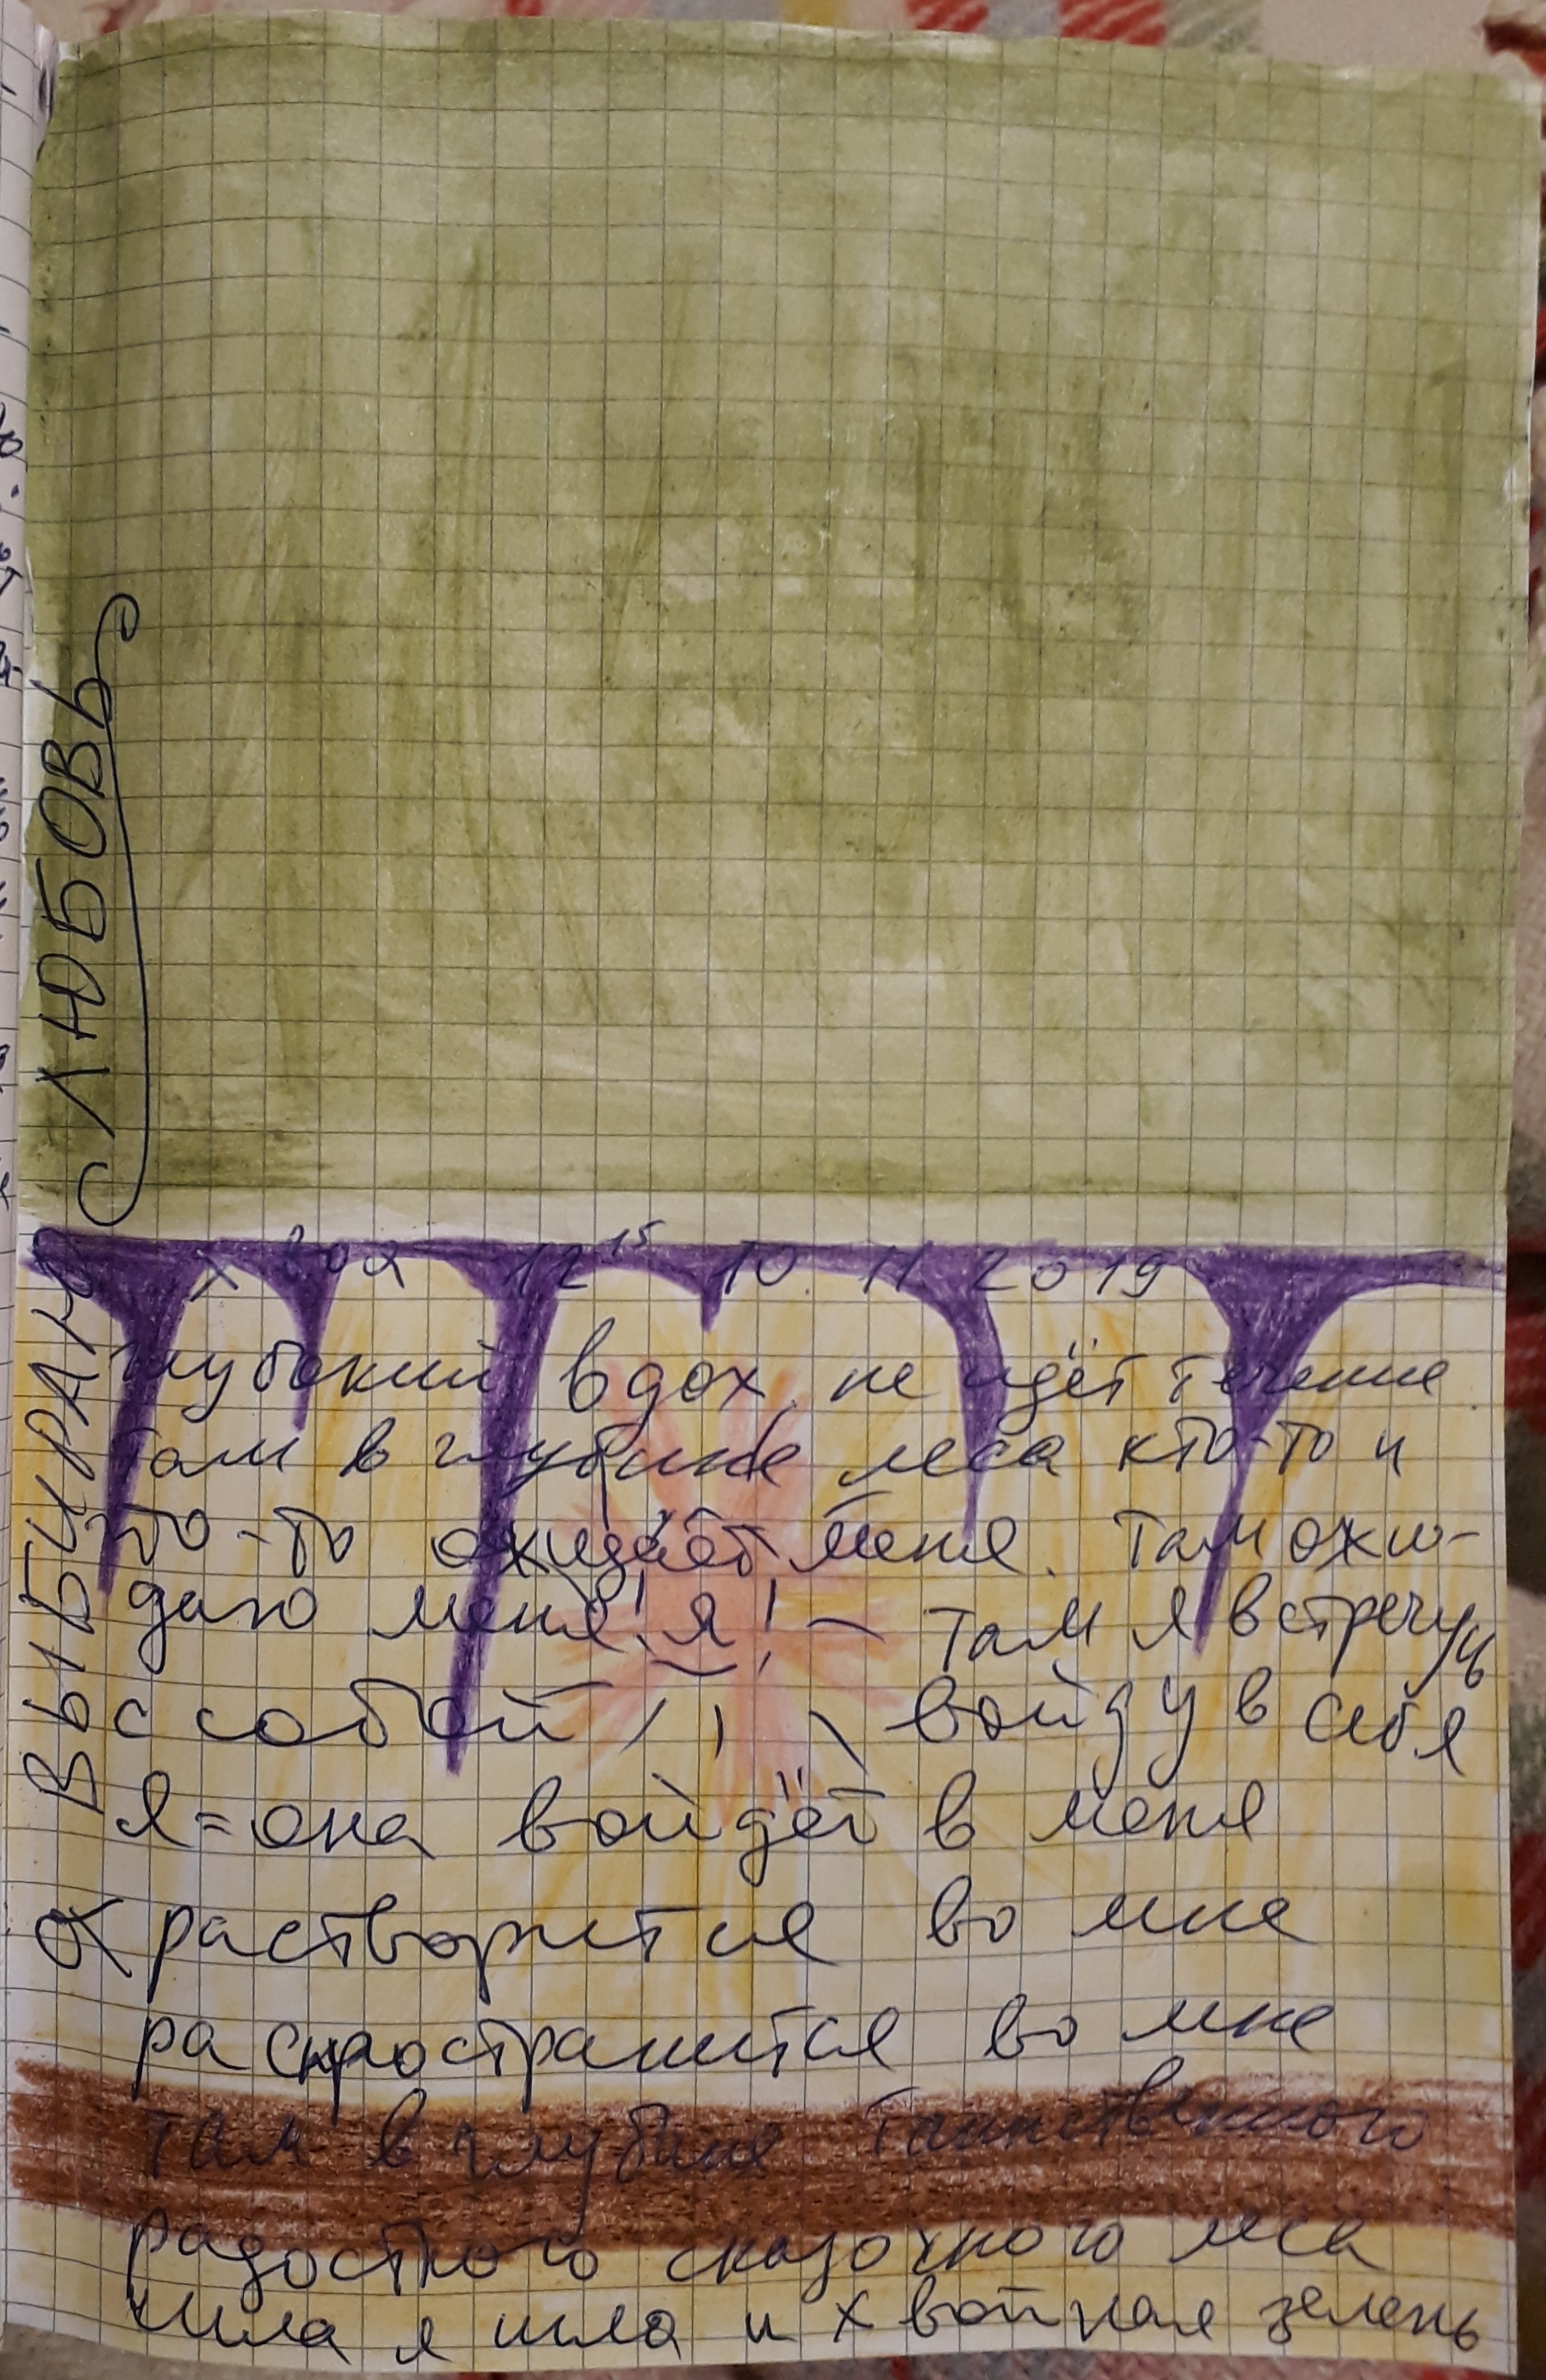 ВЫБИРАЮ ЛЮБОВЬ
хвоя 12 15 10 11 2019
глубокий вдох не идёт течение
там в глубине леса кто-то и
что-то ожидает меня. Там ожи-
даю меня я! — там я встречусь
с собой войду в себя
я=она войдёт в меня
растворится во мне
распространится во мне
там в глубине таинственного
радостного сказочного леса
шла я шла и хвойная зелень